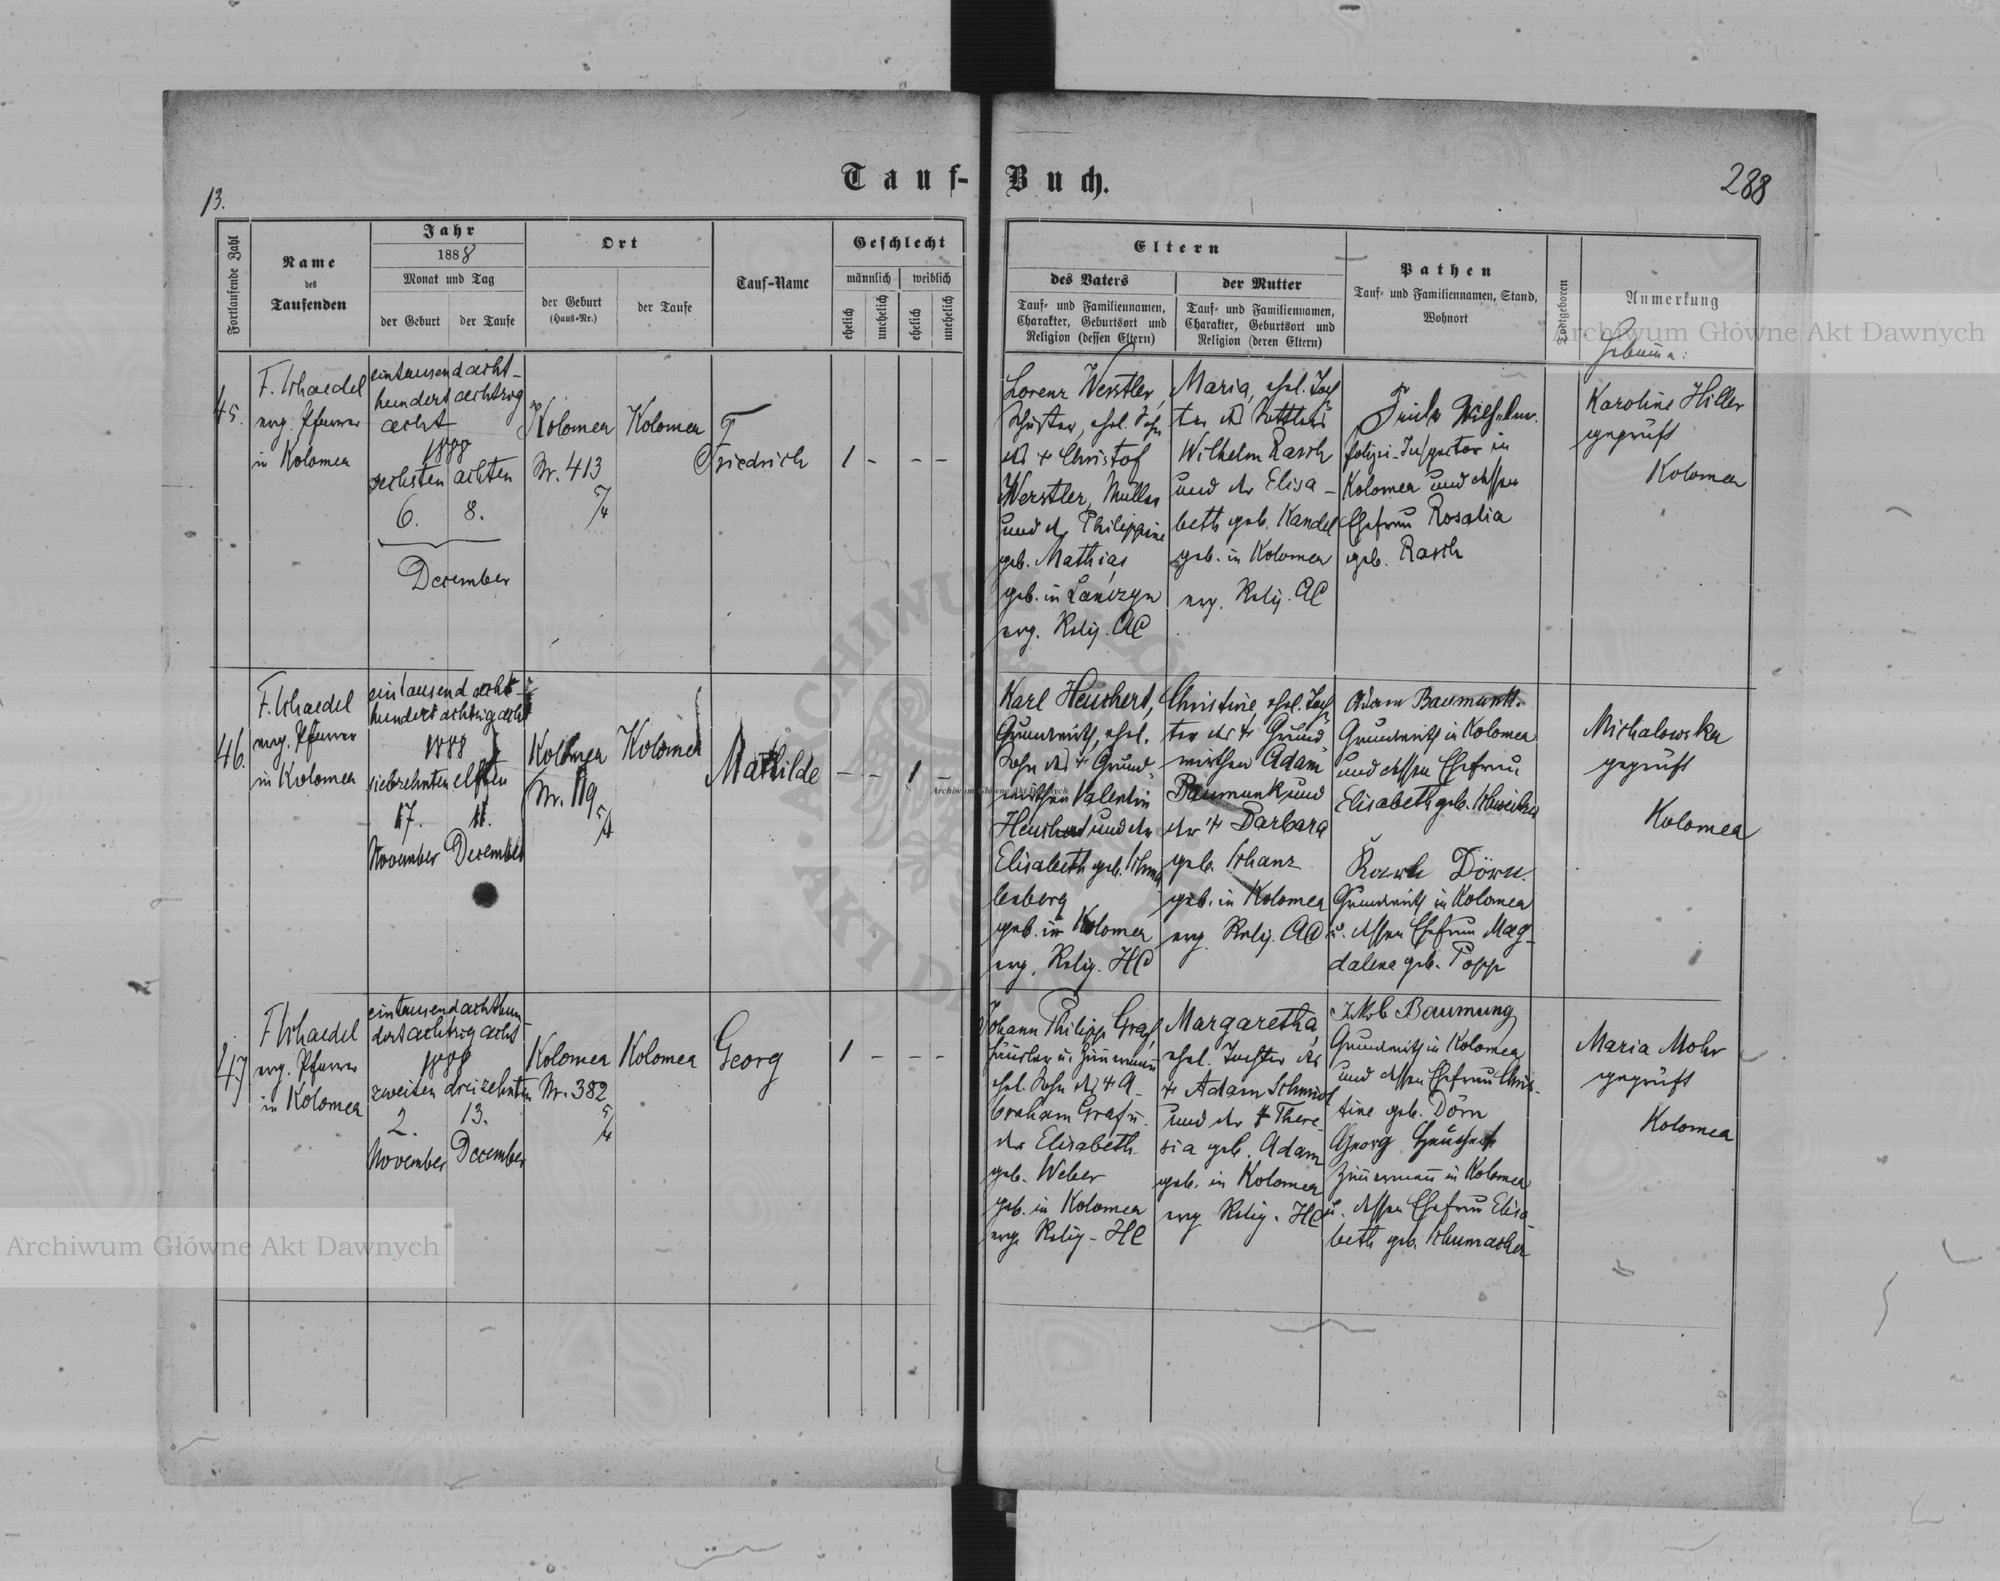 13.
Tauf-Buch.
288
Fortlaufende Zahl
Name
des
Taufenden
Jahr
1888
Monat und Tag
der Geburt
der Taufe
Ort
der Geburt
(Haus-Nr.)
der Taufe
Tauf-Name
Geschlecht
männlich
weiblich
ehelich
unehelich
ehelich
unehelich
Eltern
des Vaters
Tauf- und Familiennamen,
Charakter, Geburtsort und
Religion (dessen Eltern)
der Mutter
Tauf- und Familiennamen,
Charakter, Geburtsort und
Religion (deren Eltern)
Pathen
Tauf- und Familiennamen, Stand,
Wohnort
Todtgeboren
Anmerkung
45.
F. Schaedel
evg. Pfarrer
in Kolomea
eintausend acht-
hundert achtzig
acht
1888
sechsten achten
6. 8.
December
Kolomea
Nr. 413
Kolomea
Friedrich
1 - - -
Lorenz Werstler,
Schuster, ehel. Sohn
des + Christof
Werstler, Müller
und der Philippine
geb. Mathias
geb. in Lanczyn
evg. Relig. AC
Maria, ehel. Toch
ter des Sattlers
Wilhelm Rasch
und der Elisa-
beth geb. Kandel
geb. in Kolomea
evg. Relig. AC
Polizei-Inspector in
Kolomea und dessen
Ehefrau Rosalia
geb. Rasch
Karoline Hiller
geprüft
Kolomea
46.
F. Schaedel
evg. Pfarrer
in Kolomea
eintausend acht-
hundert achtzig acht
1888
siebzehnten elften
17. 11.
November December
Kolomea
Nr. 119
Kolomea
Mathilde
- - 1 -
Karl Heuchert,
Grundwirth, ehel.
Sohn des + Grund-
wirthen Valentin
Heuchert und der
Elisabeth geb.
geb. in Kolomea
evg. Relig. HC
Christine, ehel. Toch
ter des + Grund-
wirthen Adam
Baumunk und
der + Barbara
geb. Schanz
geb. in Kolomea
evg. Relig. AC
Adam Baumunk.
Grundwirth in Kolomea
und dessen Ehefrau
Elisabeth geb.
Karl Dörn.
Grundwirth in Kolomea
u. dessen Ehefrau Mag-
dalena geb. Popp
Michalowska
geprüft
Kolomea
47.
F. Schaedel
evg. Pfarrer
in Kolomea
eintausend achthun-
dert achtzig acht
1888
zweiten dreizehnten
2. 13.
November December
Kolomea
Nr. 382
Kolomea
Georg
1 - - -
Johann Philipp Graf,
Häusler u. Zimmermann
ehel. Sohn des + A-
braham Graf u.
der Elisabeth
geb. Weber
geb. in Kolomea
evg. Relig. HC
Margaretha,
ehel. Tochter des
+ Adam Schmidt
und der + There-
sia geb. Adam
geb. in Kolomea
evg. Relig. HC
Jakob Baumung
Grundwirth in Kolomea
und dessen Ehefrau Chris-
tine geb. Dörn
Georg Heuchert
Zimmermann in Kolomea
u. dessen Ehefrau Elisa-
beth geb. Schumacher
Maria Mohr
geprüft
Kolomea
Archiwum Główne Akt Dawnych
Archiwum Główne Akt Dawnych
Archiwum Główne Akt Dawnych